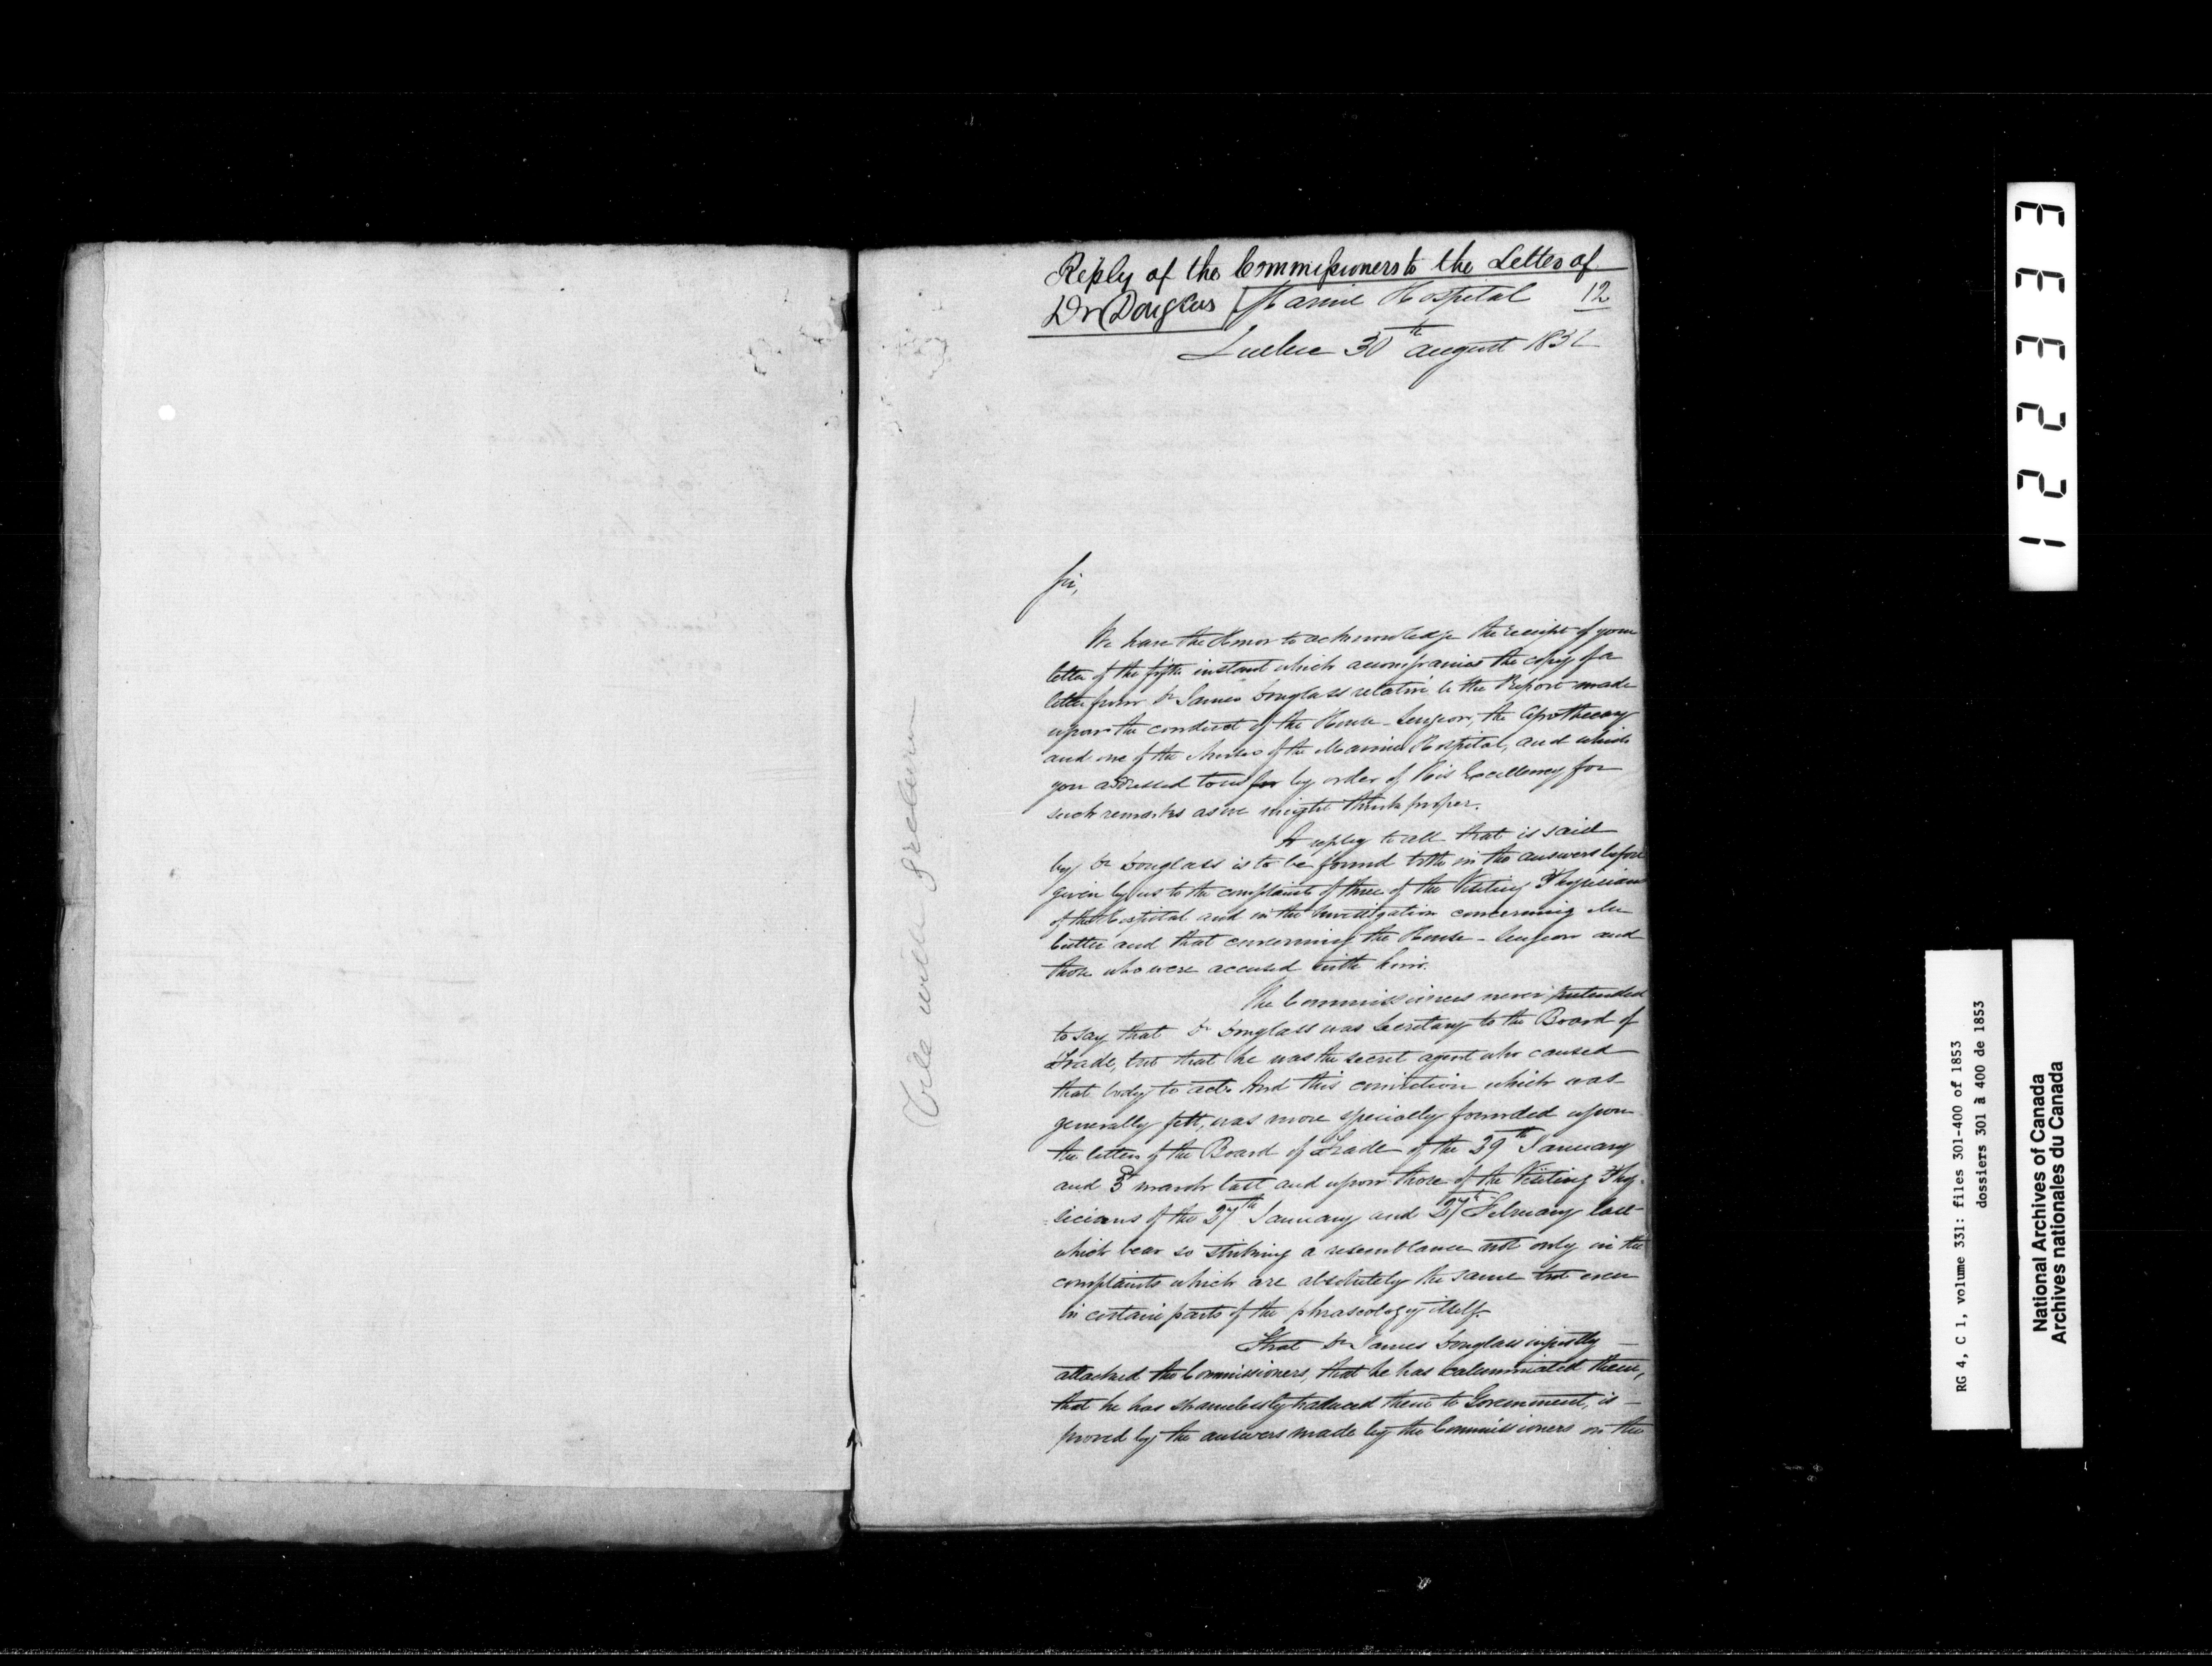 Reply of the Commissioners to the Letter of
Dr Douglas
Marine Hospital 12
Quebec 30th august 1852
Sir,
We have the Honor to acknowledge the receipt of your
letter of the fifth instant which accompanies the copy of a
letter from Dr James Douglass relative to the Report made
upon the conduct of the House-Surgeon, the Apothecary
and one of the Nurses of the Marine Hospital, and which
you addressed to us for by order of His Excellency for
such remarks as we might think proper.
A reply to all that is said
by Dr Douglass is to be found both in the answers before
given by us to the complaints of three of the Visiting Physicians
of that Hospital and in the Investigation concerning
and that concerning the House-Surgeon and
those who were accused with him.
The Commissioners never pretended
to say that Dr Douglass was Secretary to the Board of
Trade, but that he was the secret agent who caused
that body to act. And this conviction which was
generally felt, was more specially founded upon
the letters of the Board of Trade of the 29th January
and 3d march last and upon those of the Visiting Phy-
-sicians of the 27th January and 27th February last
which bear so striking a resemblance not only in the
complaints which are absolutely the same but even
in certain parts of the phraseology itself.
That Dr James Douglass unjustly
attacked the Commissioners, that he has calumniated them,
that he has shamelessly traduced them to Government, is
proved by the answers made by the Commissioners on the
12233
RG 4, C 1, volume 331: files 301-400 of 1853
dossiers 301 à 400 de 1853
National Archives of Canada
Archives nationales du Canada